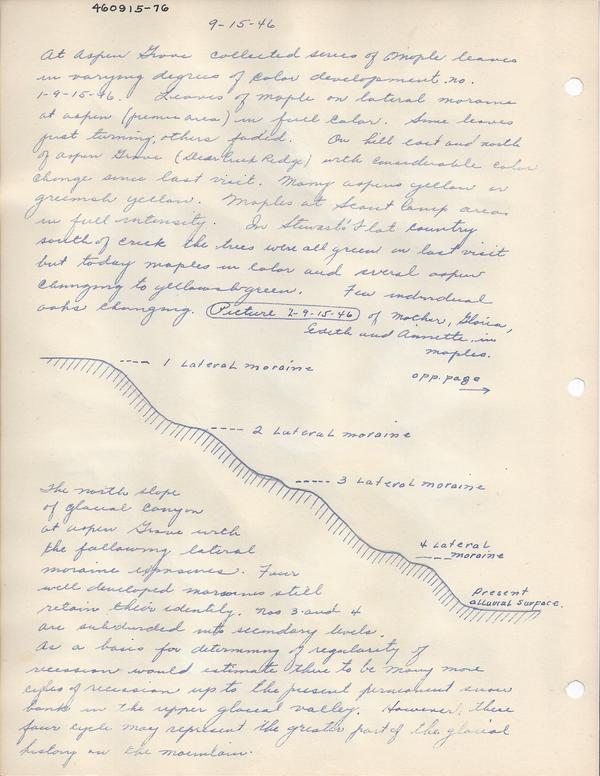 460915-76
9-15-46
At Aspen Grove collected series of Maple leaves
in varying degrees of color development. no.
1-9-15-46. Leaves of maple on lateral moraine
at aspen (picnic area) in full color. Some leaves
just turning, others faded. On hill east and north
of aspen Grove (Deer Creek Ridge) with considerable color
change since last visit. Many aspens yellow or
greenish yellow. Maples at Scout Camp area
in full intensity. In Stewart's Flat country
south of creek the trees were all green on last visit
but today maples in color and several aspen
changing to yellowish green. Few individual
oaks changing. Picture 2-9-15-46 of Mother, Gloria,
Edith and Annette, in
maples.
opp. page
1 Lateral moraine
2 Lateral moraine
3 Lateral moraine
4 Lateral
moraine
Present
alluvial surface.
The north slope
of glacial canyon
at aspen Grove with
the following lateral
moraine exposures. Four
well developed moraines still
retain their identity. Nos 3 and 4
are subdivided into secondary levels.
As a basis for determining of regularity of
recession would estimate there to be many more
cycles of recession up to the present permanent snow
bank in the upper glacial valley. However, these
four cycle may represent the greater part of the glacial
history on the mountain.